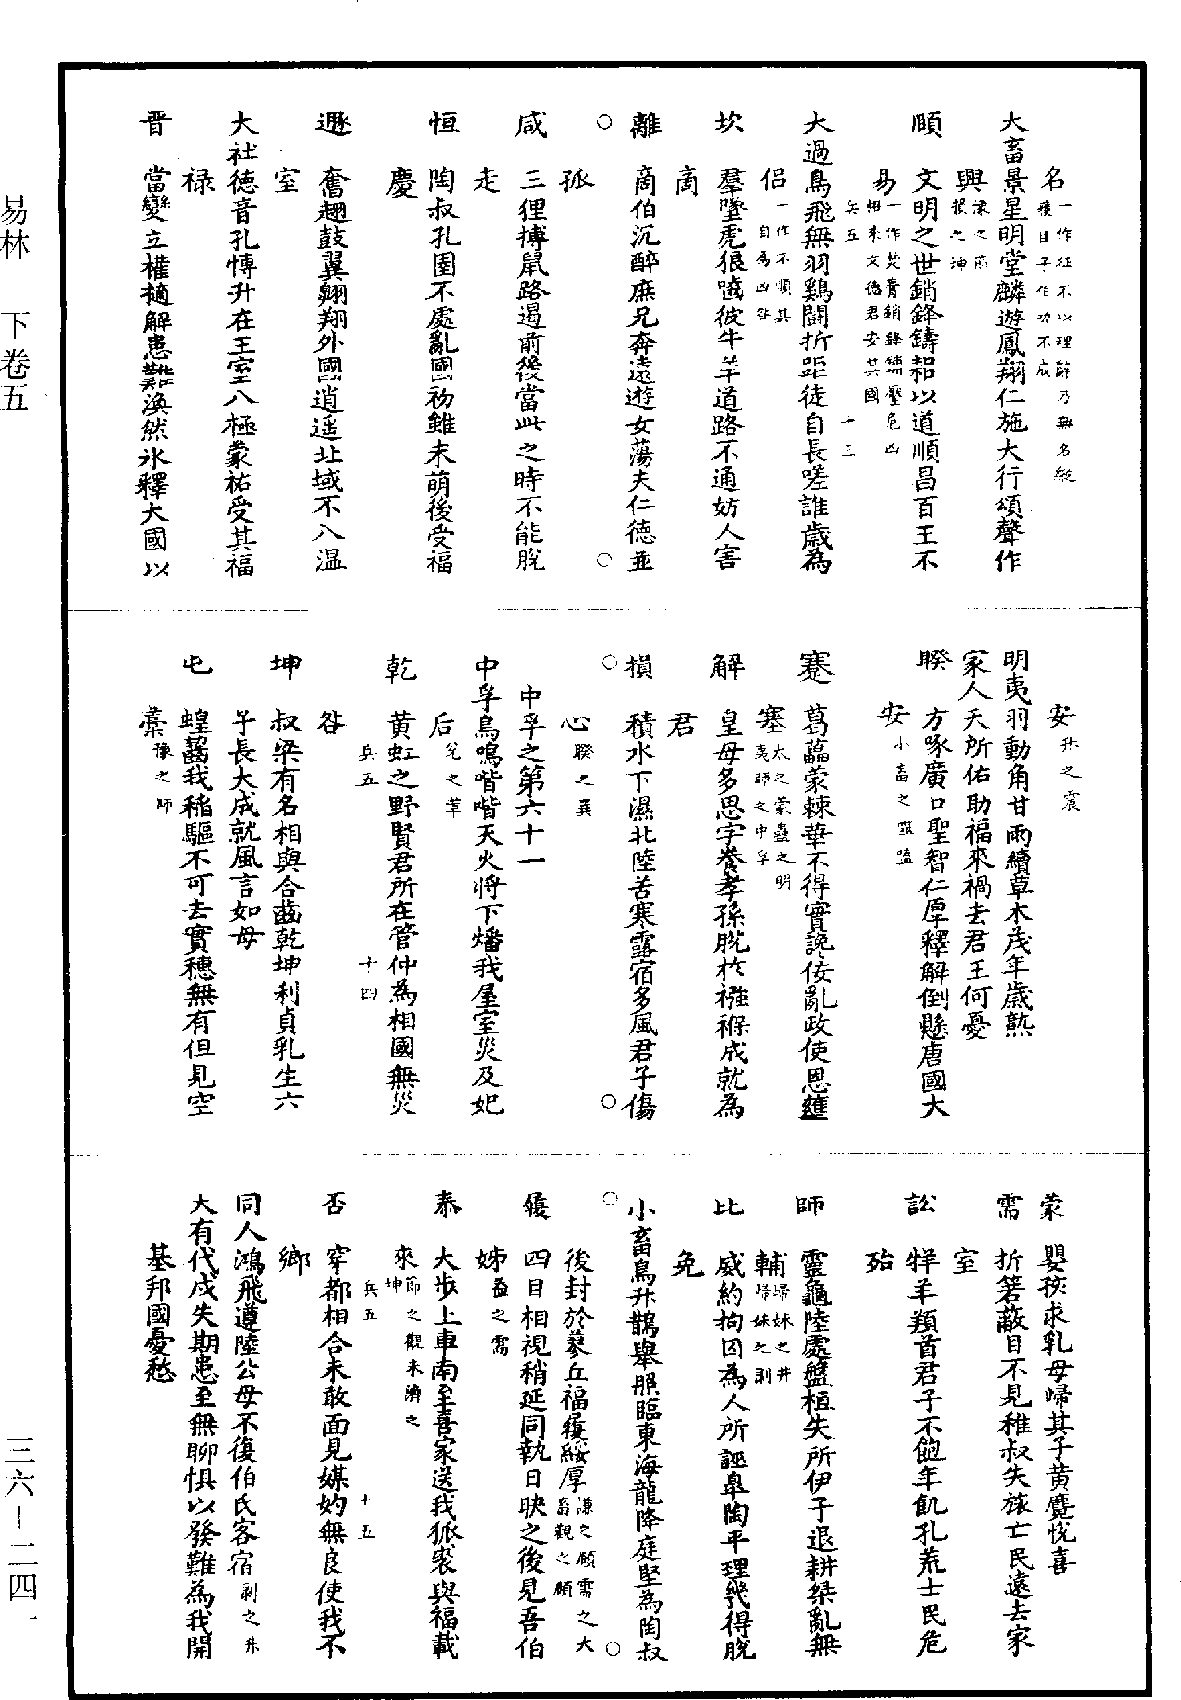 易林　下卷五
三六—二四一
名一作征不以理辭乃無名縱獲日子作功不成
大畜景星明堂麟遊鳳翔仁施大行頌聲作
興渙之節損之坤
頤　文明之世銷鋒鑄耜以道順昌百王不
易一作焚書銷鋒鋪壓危凶相來文德君安其國
兵五　十三
大過鳥飛無羽鷄鬭折距徒自長嗟誰歲為
侣一作不順其自為凶咎
坎　羣墮虎狼噬彼牛羊道路不通妨人害
商
離　商伯沉醉庶兄奔遠遊女蕩夫仁德並
孤
咸　三狸搏鼠路遏前後當此之時不能脫
走
恒　陶叔孔圉不處亂國初雖未萌後受福
慶
遯　奮翅鼓翼翺翔外國逍遥北域不入温
室
大社德音孔愽升在王室八極蒙祐受其福
禄
晋　當變立權擿解患難渙然氷釋大國以
安升之震
明夷羽動角甘雨續草木茂年歲熟
家人天所佑助福來禍去君王何憂
睽　方啄廣口聖智仁厚釋解倒懸唐國大
安小畜之噬嗑
蹇　葛藟蒙棘華不得實讒佞亂政使恩壅
塞大之蒙蠱之明夷師之中孚
解　皇母多恩字養孝孫脫於襁褓成就為
君
損　積水下濕北陸苦寒露宿多風君子傷
心睽之巽
中孚之第六十一
中孚鳥鳴喈喈天火將下燔我屋室災及妃
后兌之革
乾　黄虹之野賢君所在管仲為相國無災
兵五　十四
咎
坤　叔梁有名相與合齒乾坤利貞乳生六
子長大成就風言如母
屯　蝗齧我稻驅不可去實穗無有但見空
藁豫之師
蒙　嬰孩求乳母歸其子黄麑悅喜
需　折箬蔽目不見稚叔失旅亡民遠去家
室
訟　牂羊羵首君子不飽年飢孔荒士民危
殆
師　靈龜陸處盤桓失所伊子退耕桀亂無
輔歸妹之井歸妹之剥
比　威約拘囚為人所誣臯陶平理幾得脫
免
小畜鳥升鵲舉照臨東海龍降庭堅為陶叔
後封於蓼丘福履綏厚謙之頤需之大畜觀之頤
履　四目相視稍延同執日昳之後見吾伯
姊益之需
泰　大步上車南至喜家送我狐裘與福載
來節之觀未濟之坤
兵五　十五
否　穿都相合未敢面見媒妁無良使我不
鄉
同人鴻飛遵陸公母不復伯氏客宿剥之升
大有代戍失期患至無聊懼以發難為我開
基邦國憂愁